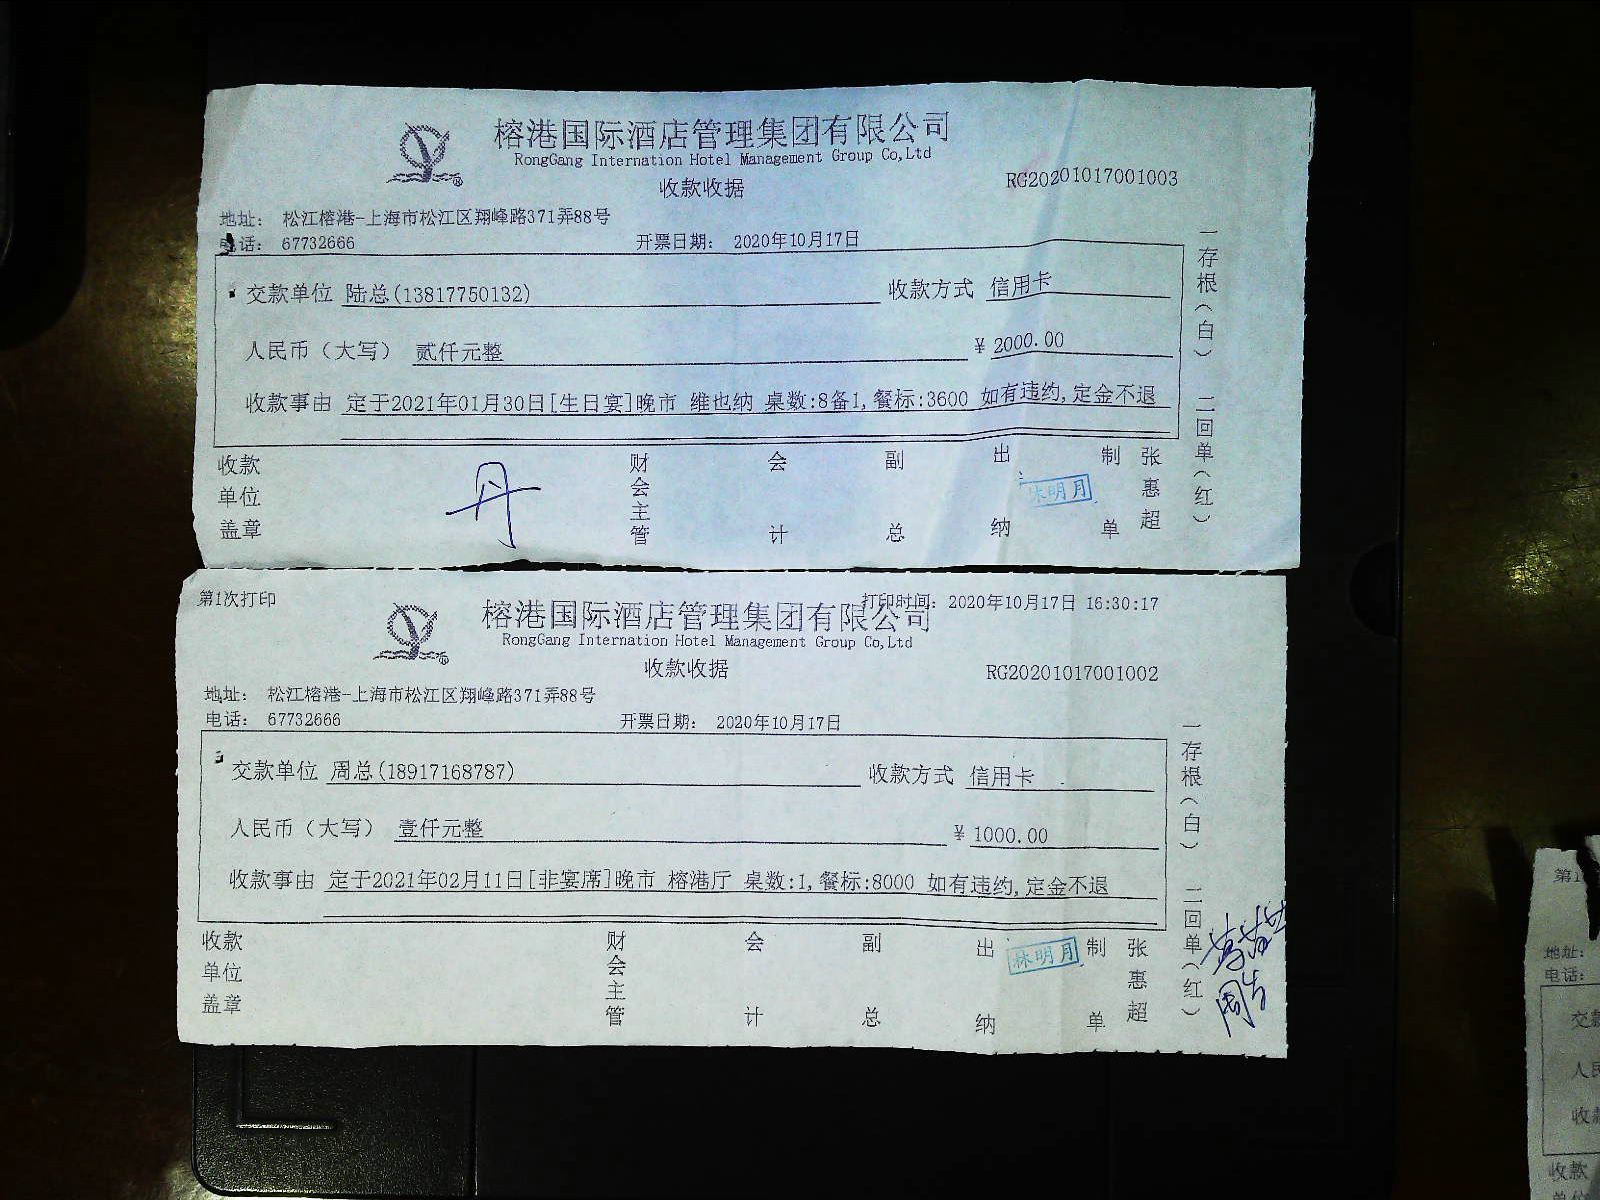 榕港国际酒店管理集团有限公司
RongGang Internation Hotel Management Group Co,Ltd
收款收据
RG20201017001003
地址: 松江榕港-上海市松江区翔峰路371弄88号
电话: 67732666 开票日期: 2020年10月17日
交款单位 陆总(13817750132) 收款方式 信用卡
人民币(大写) 贰仟元整 ¥ 2000.00
收款事由 定于2021年01月30日[生日宴]晚市 维也纳 桌数:8备1,餐标:3600 如有违约,定金不退
一存根(白) 二回单(红)
收款单位盖章
丹
财会主管
会计
副总
出纳
林明月
制单
张惠超
第1次打印
打印时间: 2020年10月17日 16:30:17
榕港国际酒店管理集团有限公司
RongGang Internation Hotel Management Group Co,Ltd
收款收据
RG20201017001002
地址: 松江榕港-上海市松江区翔峰路371弄88号
电话: 67732666 开票日期: 2020年10月17日
交款单位 周总(18917168787) 收款方式 信用卡
人民币(大写) 壹仟元整 ¥ 1000.00
收款事由 定于2021年02月11日[非宴席]晚市 榕港厅 桌数:1,餐标:8000 如有违约,定金不退
一存根(白) 二回单(红)
收款单位盖章
财会主管
会计
副总
出纳
林明月
制单
张惠超
第1
地址:
电话:
交款
人民
收款
收款